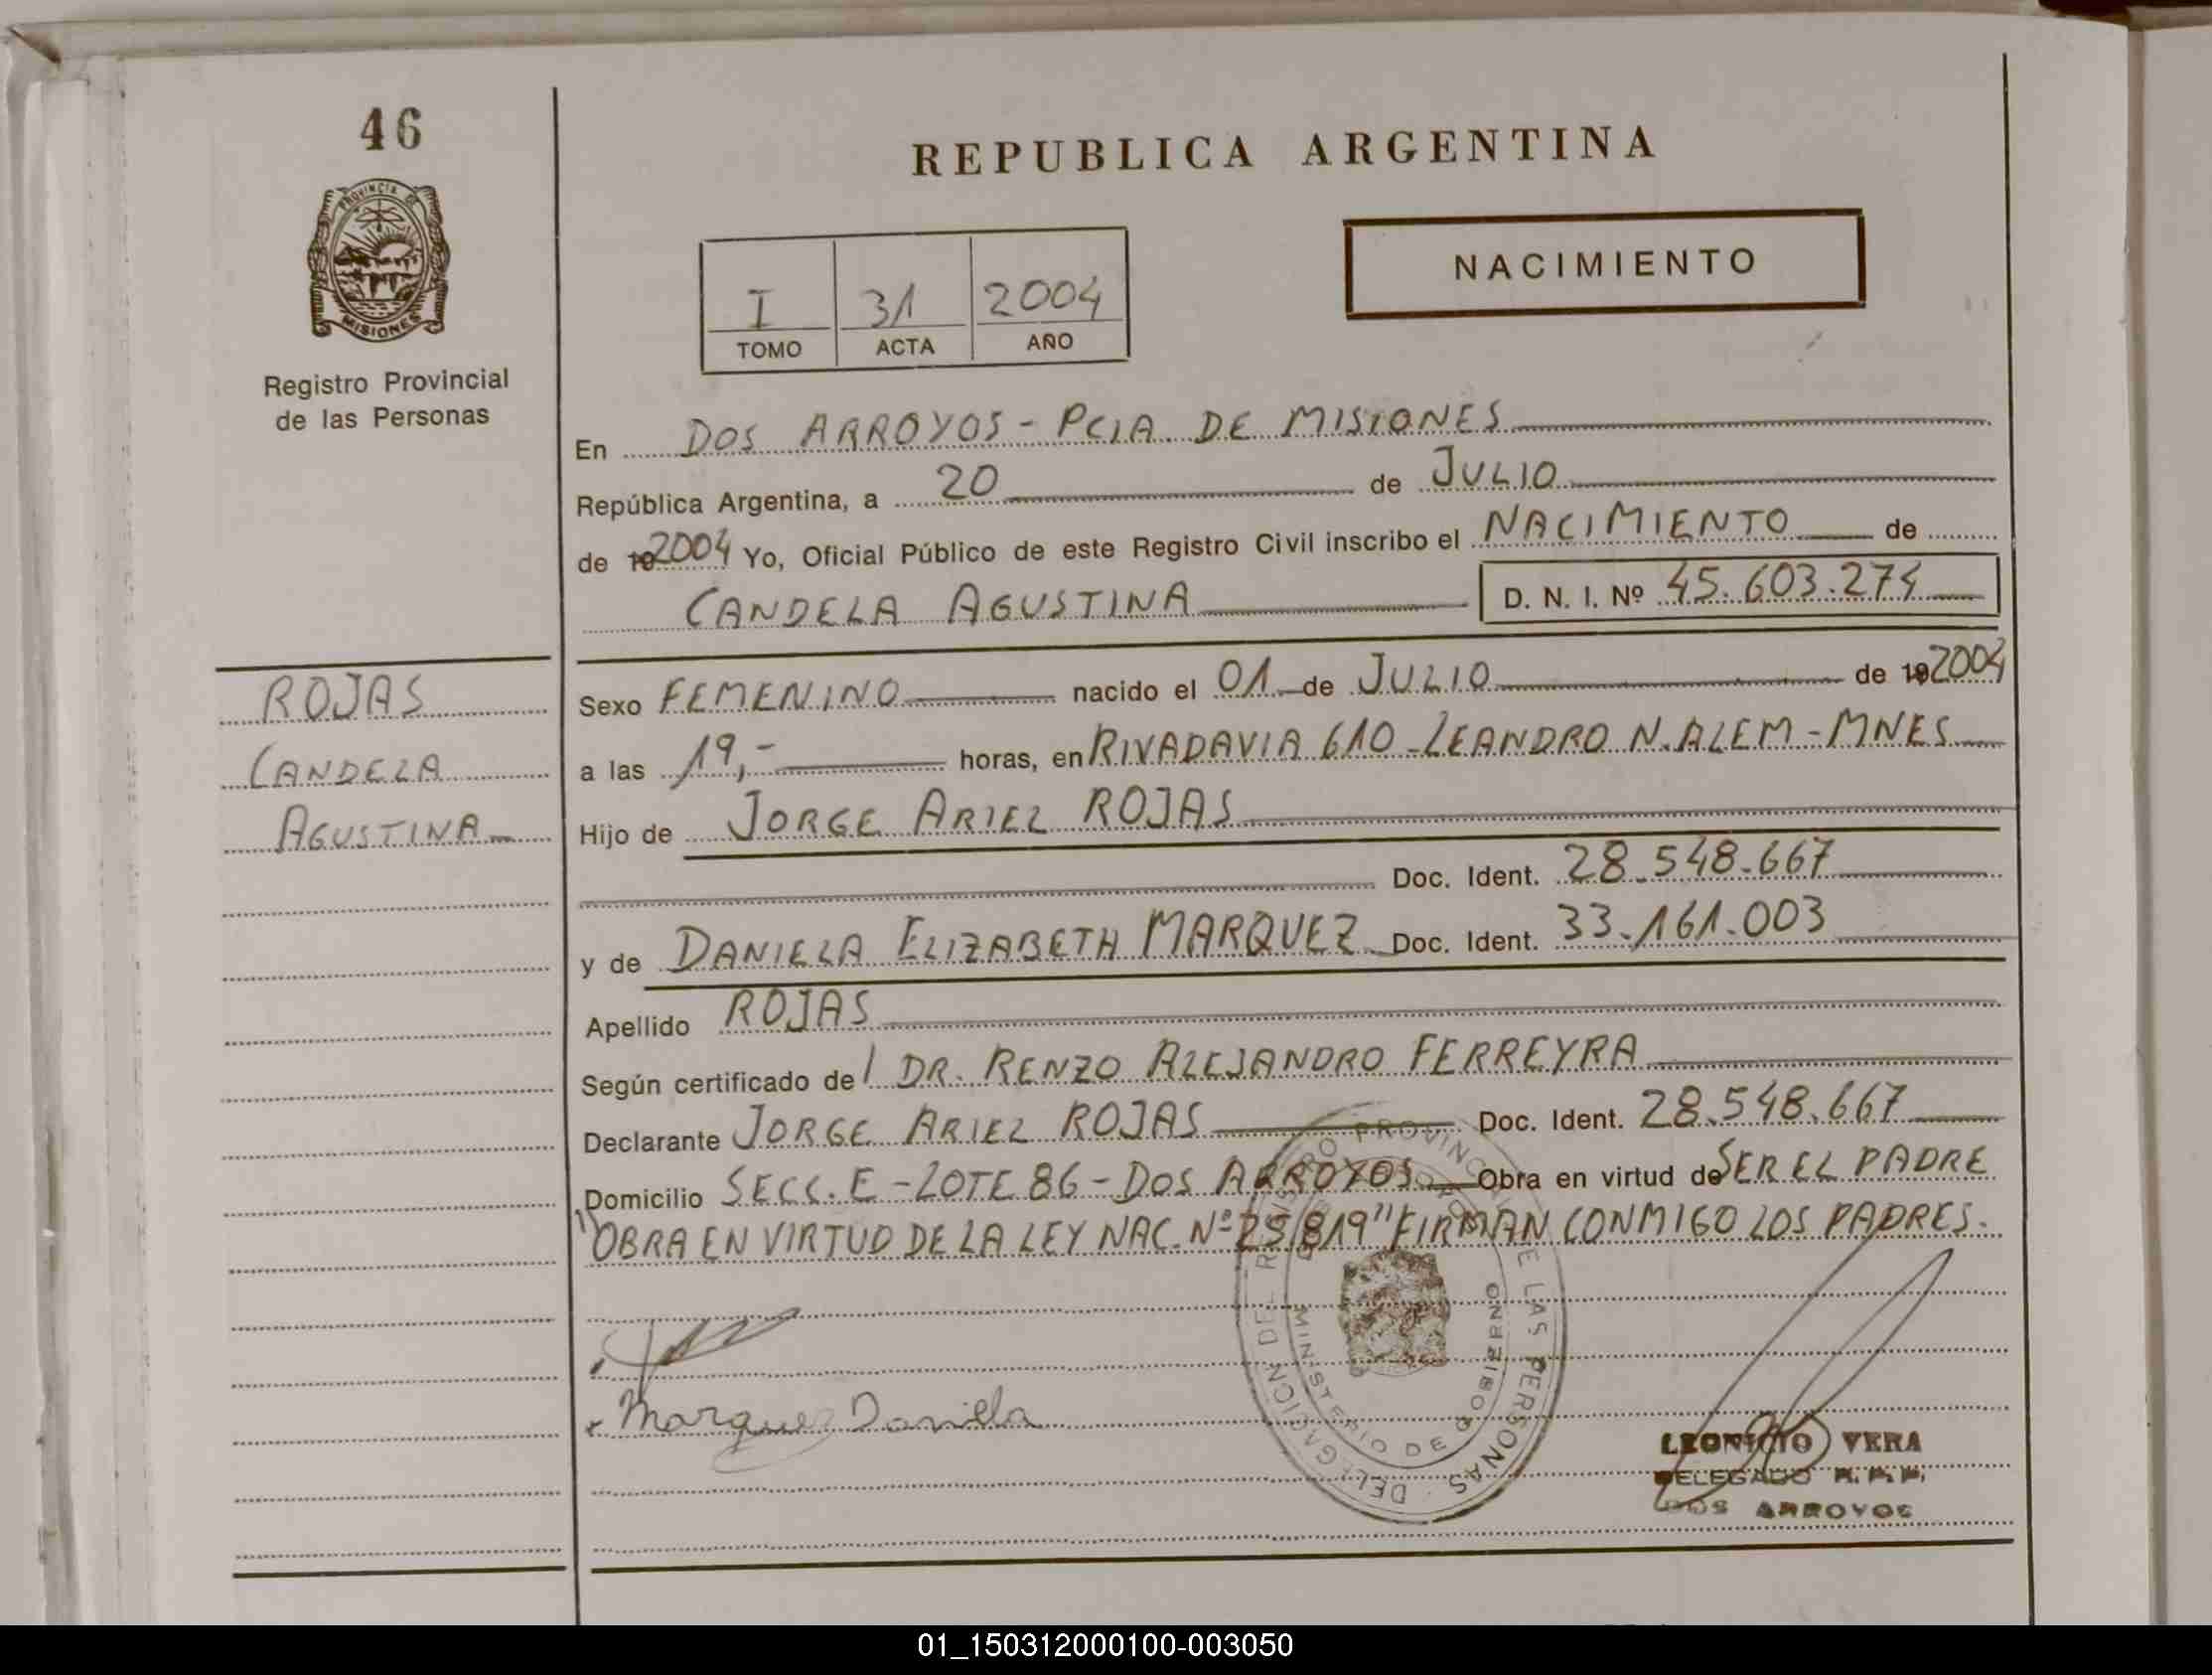 46
REPUBLICA ARGENTINA
PROVINCIA DE
MISIONES
Registro Provincial
de las Personas
NACIMIENTO
I 31 2004
TOMO ACTA AÑO
En DOS ARROYOS - PCIA. DE MISIONES
República Argentina, a 20 de JULIO
de 19 2004 Yo, Oficial Público de este Registro Civil inscribo el NACIMIENTO de
CANDELA AGUSTINA D. N. I. Nº 45.603.274
ROJAS
CANDELA
AGUSTINA
Sexo FEMENINO nacido el 01 de JULIO de 19 2004
a las 19,- horas, en RIVADAVIA 610 - LEANDRO N. ALEM - MNES
Hijo de JORGE ARIEL ROJAS
Doc. Ident. 28.548.667
y de DANIELA ELIZABETH MARQUEZ Doc. Ident. 33.161.003
Apellido ROJAS
Según certificado del DR. RENZO ALEJANDRO FERREYRA
Declarante JORGE ARIEL ROJAS Doc. Ident. 28.548.667
Domicilio SECC. E - LOTE 86 - DOS ARROYOS Obra en virtud de SER EL PADRE
"OBRA EN VIRTUD DE LA LEY NAC. Nº 25.819" FIRMAN CONMIGO LOS PADRES.
Marquez Daniela
DELEGACION DEL REGISTRO PROVINCIAL DE LAS PERSONAS
MINISTERIO DE GOBIERNO
LEONICIO VERA
DELEGADO R.P.P.
DOS ARROYOS
01_150312000100-003050